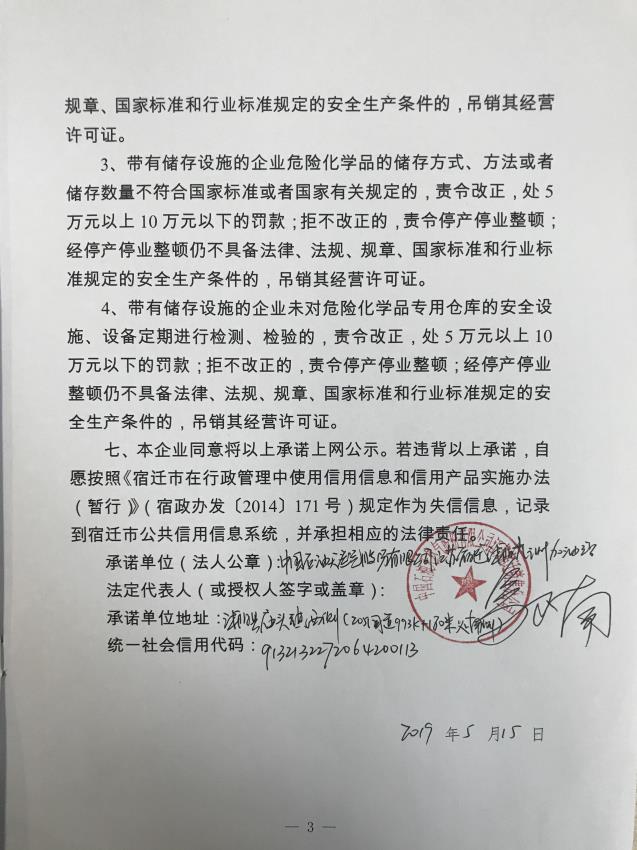 规章、国家标准和行业标准规定的安全生产条件的，吊销其经营
许可证。
3、带有储存设施的企业危险化学品的储存方式、方法或者
储存数量不符合国家标准或者国家有关规定的，责令改正，处 5
万元以上 10 万元以下的罚款；拒不改正的，责令停产停业整顿；
经停产停业整顿仍不具备法律、法规、规章、国家标准和行业标
准规定的安全生产条件的，吊销其经营许可证。
4、带有储存设施的企业未对危险化学品专用仓库的安全设
施、设备定期进行检测、检验的，责令改正，处 5 万元以上 10
万元以下的罚款；拒不改正的，责令停产停业整顿；经停产停业
整顿仍不具备法律、法规、规章、国家标准和行业标准规定的安
全生产条件的，吊销其经营许可证。
七、本企业同意将以上承诺上网公示。若违背以上承诺，自
愿按照《宿迁市在行政管理中使用信用信息和信用产品实施办法
（暂行）》（宿政办发〔2014〕171 号）规定作为失信信息，记录
到宿迁市公共信用信息系统，并承担相应的法律责任。
承诺单位（法人公章）：中国石油天然气股份有限公司江苏宿迁 加油站
法定代表人（或授权人签字或盖章）：
承诺单位地址：
统一社会信用代码：9132132272064200113
2019 年 5 月 15 日
— 3 —